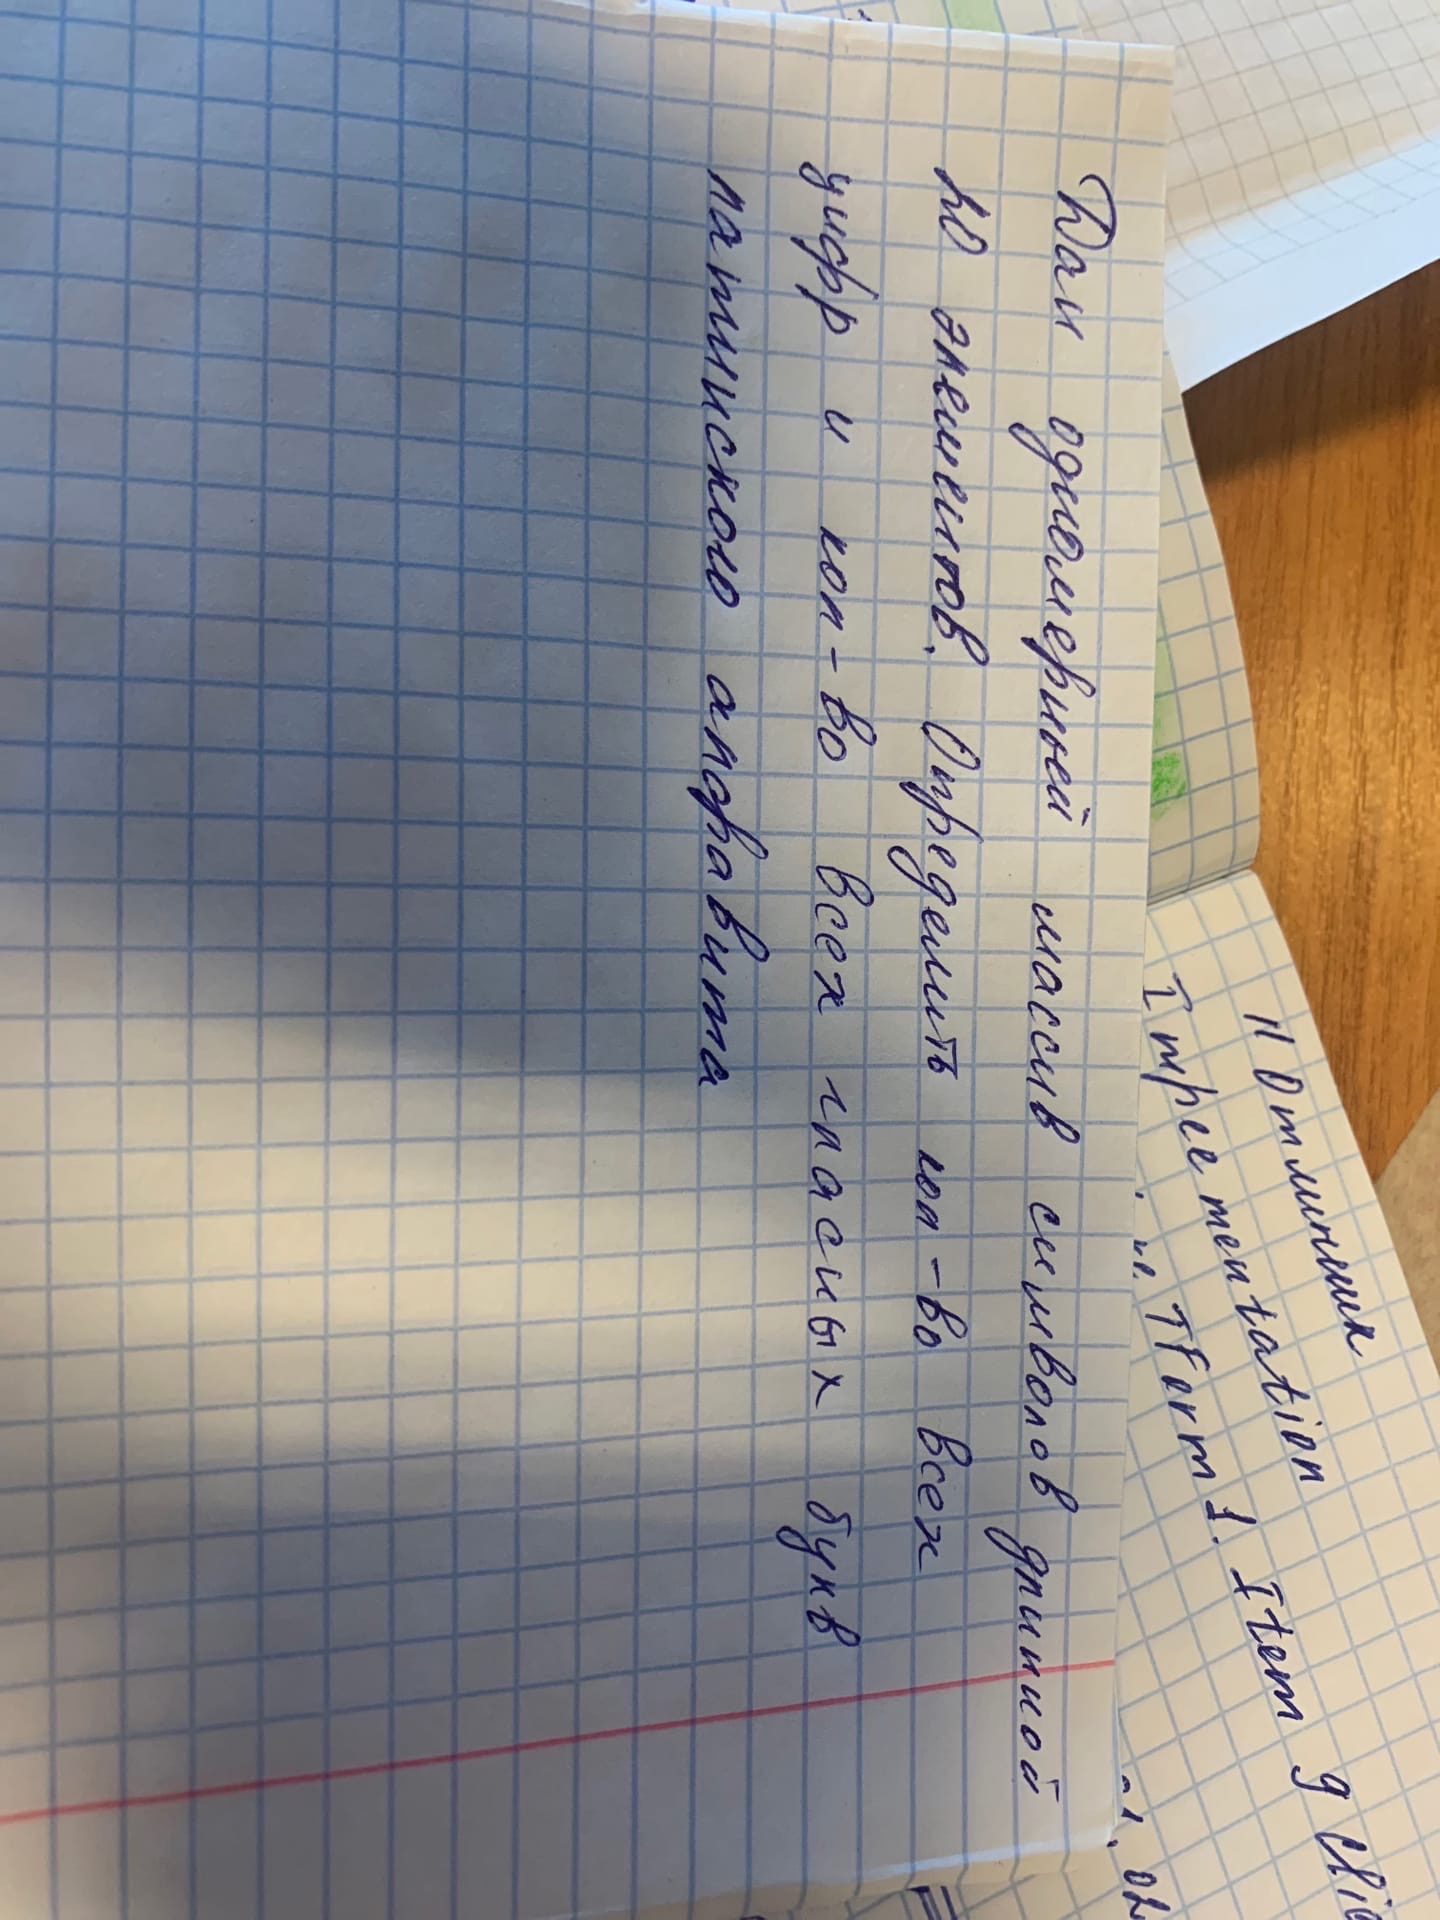 Дан одномерный массив символов длинной
20 элементов. Определить кол-во всех
цифр и кол-во всех гласных букв
латинского алфавита
"Отличник
Implementation
TForm1. Item 9 Clic